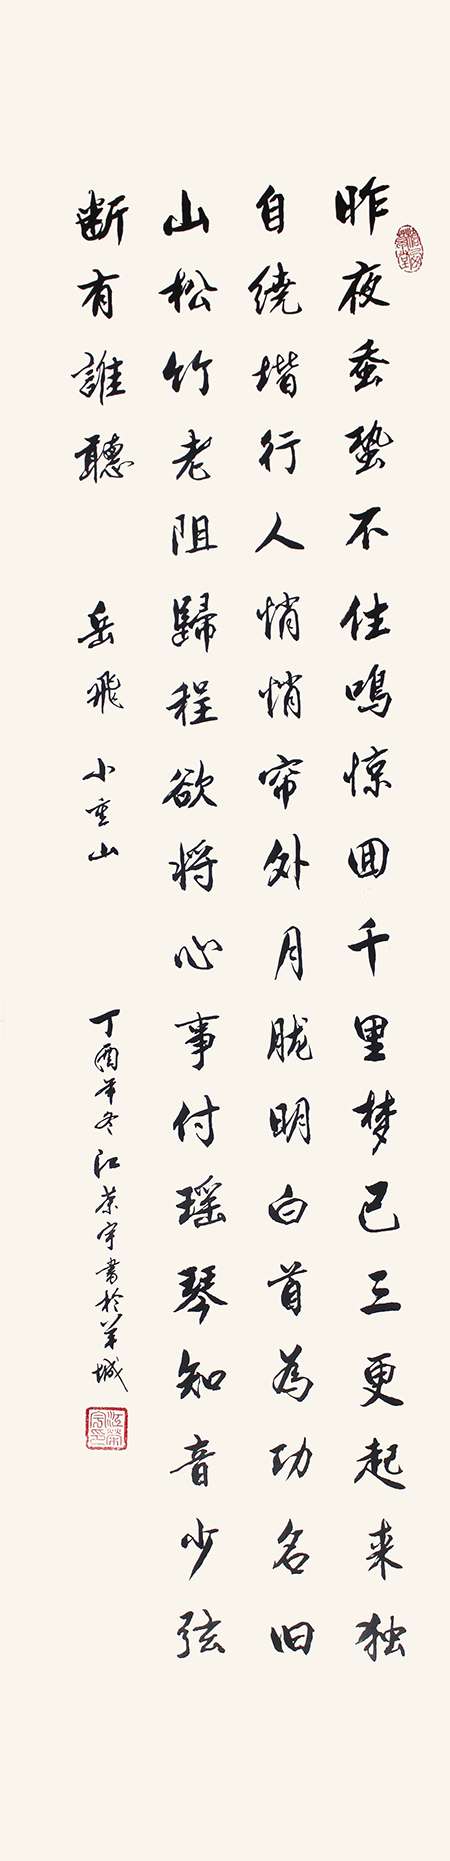 昨夜蚕蛩不住鳴惊囬千里梦已三更起来独
自绕堦行人悄悄帘外月胧明白首為功名旧
山松竹老阻歸程欲将心事付瑶琴知音少弦
断有誰聽 岳飛 小重山 丁酉年冬江荣宇書於羊城